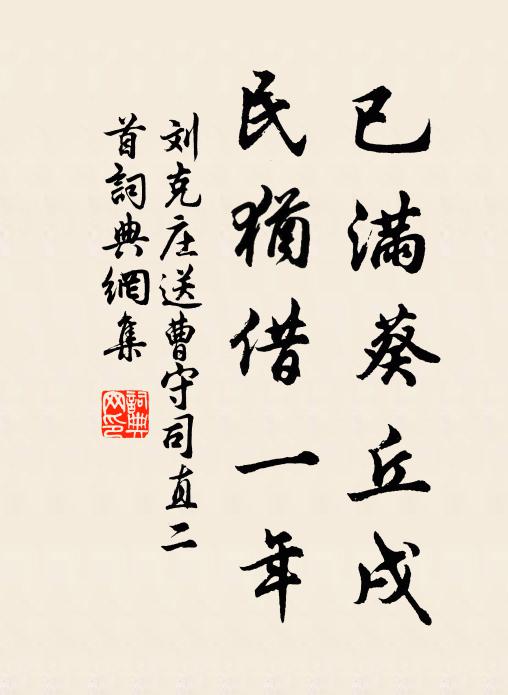 已满葵丘戍
民犹借一年
刘克庄送曹守司直二
首词典网集
词典网印